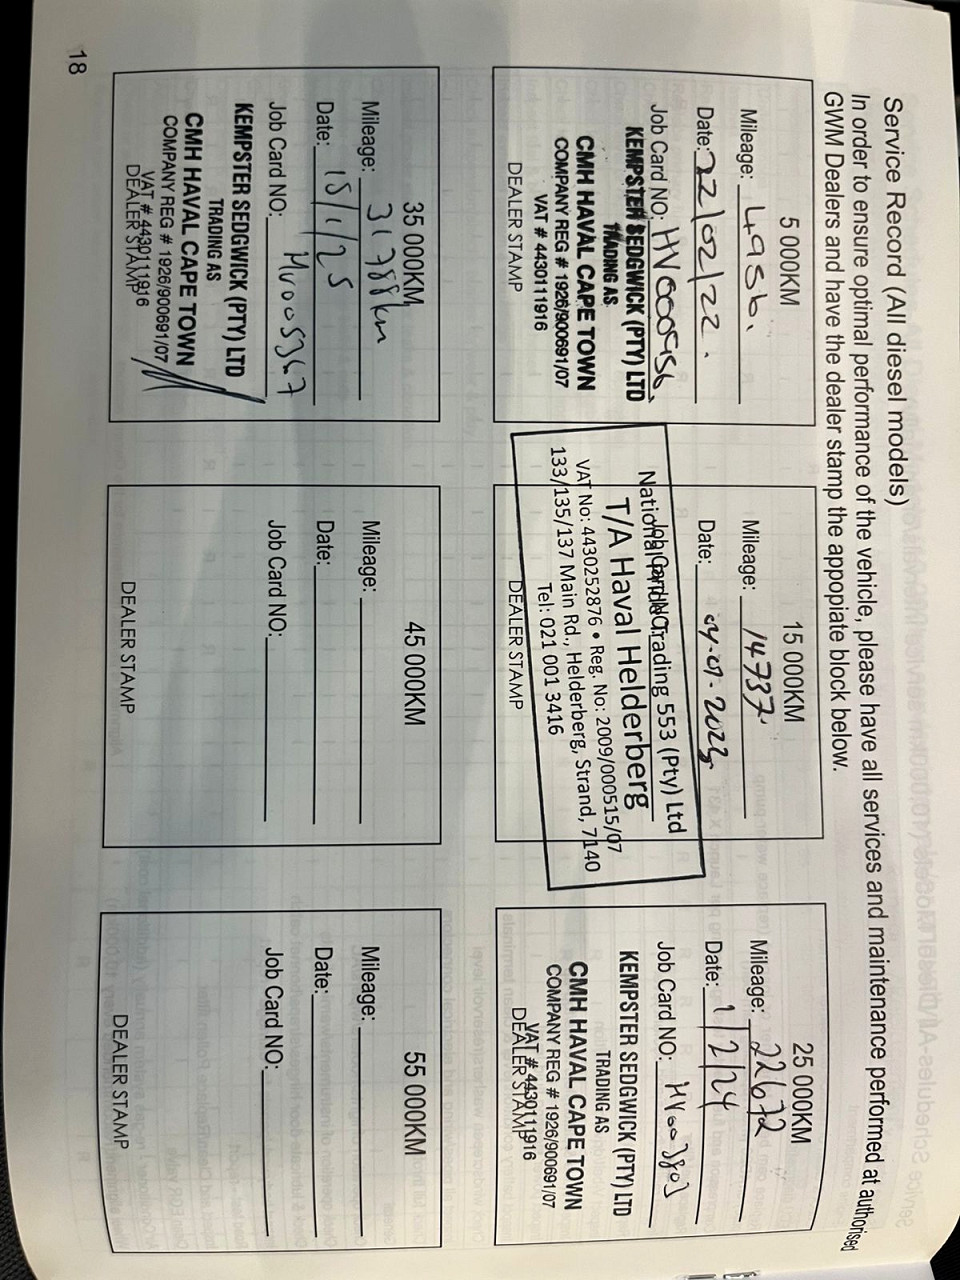 Service Record (All diesel models)
In order to ensure optimal performance of the vehicle, please have all services and maintenance performed at authorised
GWM Dealers and have the dealer stamp the appopiate block below.
5 000KM
Mileage: 4956.
Date: 22/02/22.
Job Card NO: HV000956.
KEMPSTER SEDGWICK (PTY) LTD
TRADING AS
CMH HAVAL CAPE TOWN
COMPANY REG # 1926/900691/07
VAT # 4430111916
DEALER STAMP
15 000KM
Mileage: 14737
Date: 04-01-2023
Job Card NO:
National Pride Trading 553 (Pty) Ltd
T/A Haval Helderberg
VAT No: 4430252876 • Reg. No: 2009/000515/07
133/135/137 Main Rd., Helderberg, Strand, 7140
Tel: 021 001 3416
DEALER STAMP
25 000KM
Mileage: 22672
Date: 1/2/24
Job Card NO: HV003803
KEMPSTER SEDGWICK (PTY) LTD
TRADING AS
CMH HAVAL CAPE TOWN
COMPANY REG # 1926/900691/07
VAT # 4430111916
DEALER STAMP
35 000KM
Mileage: 31788km
Date: 15/1/25
Job Card NO: MV005367
KEMPSTER SEDGWICK (PTY) LTD
TRADING AS
CMH HAVAL CAPE TOWN
COMPANY REG # 1926/900691/07
VAT # 4430111916
DEALER STAMP
45 000KM
Mileage:
Date:
Job Card NO:
DEALER STAMP
55 000KM
Mileage:
Date:
Job Card NO:
DEALER STAMP
18